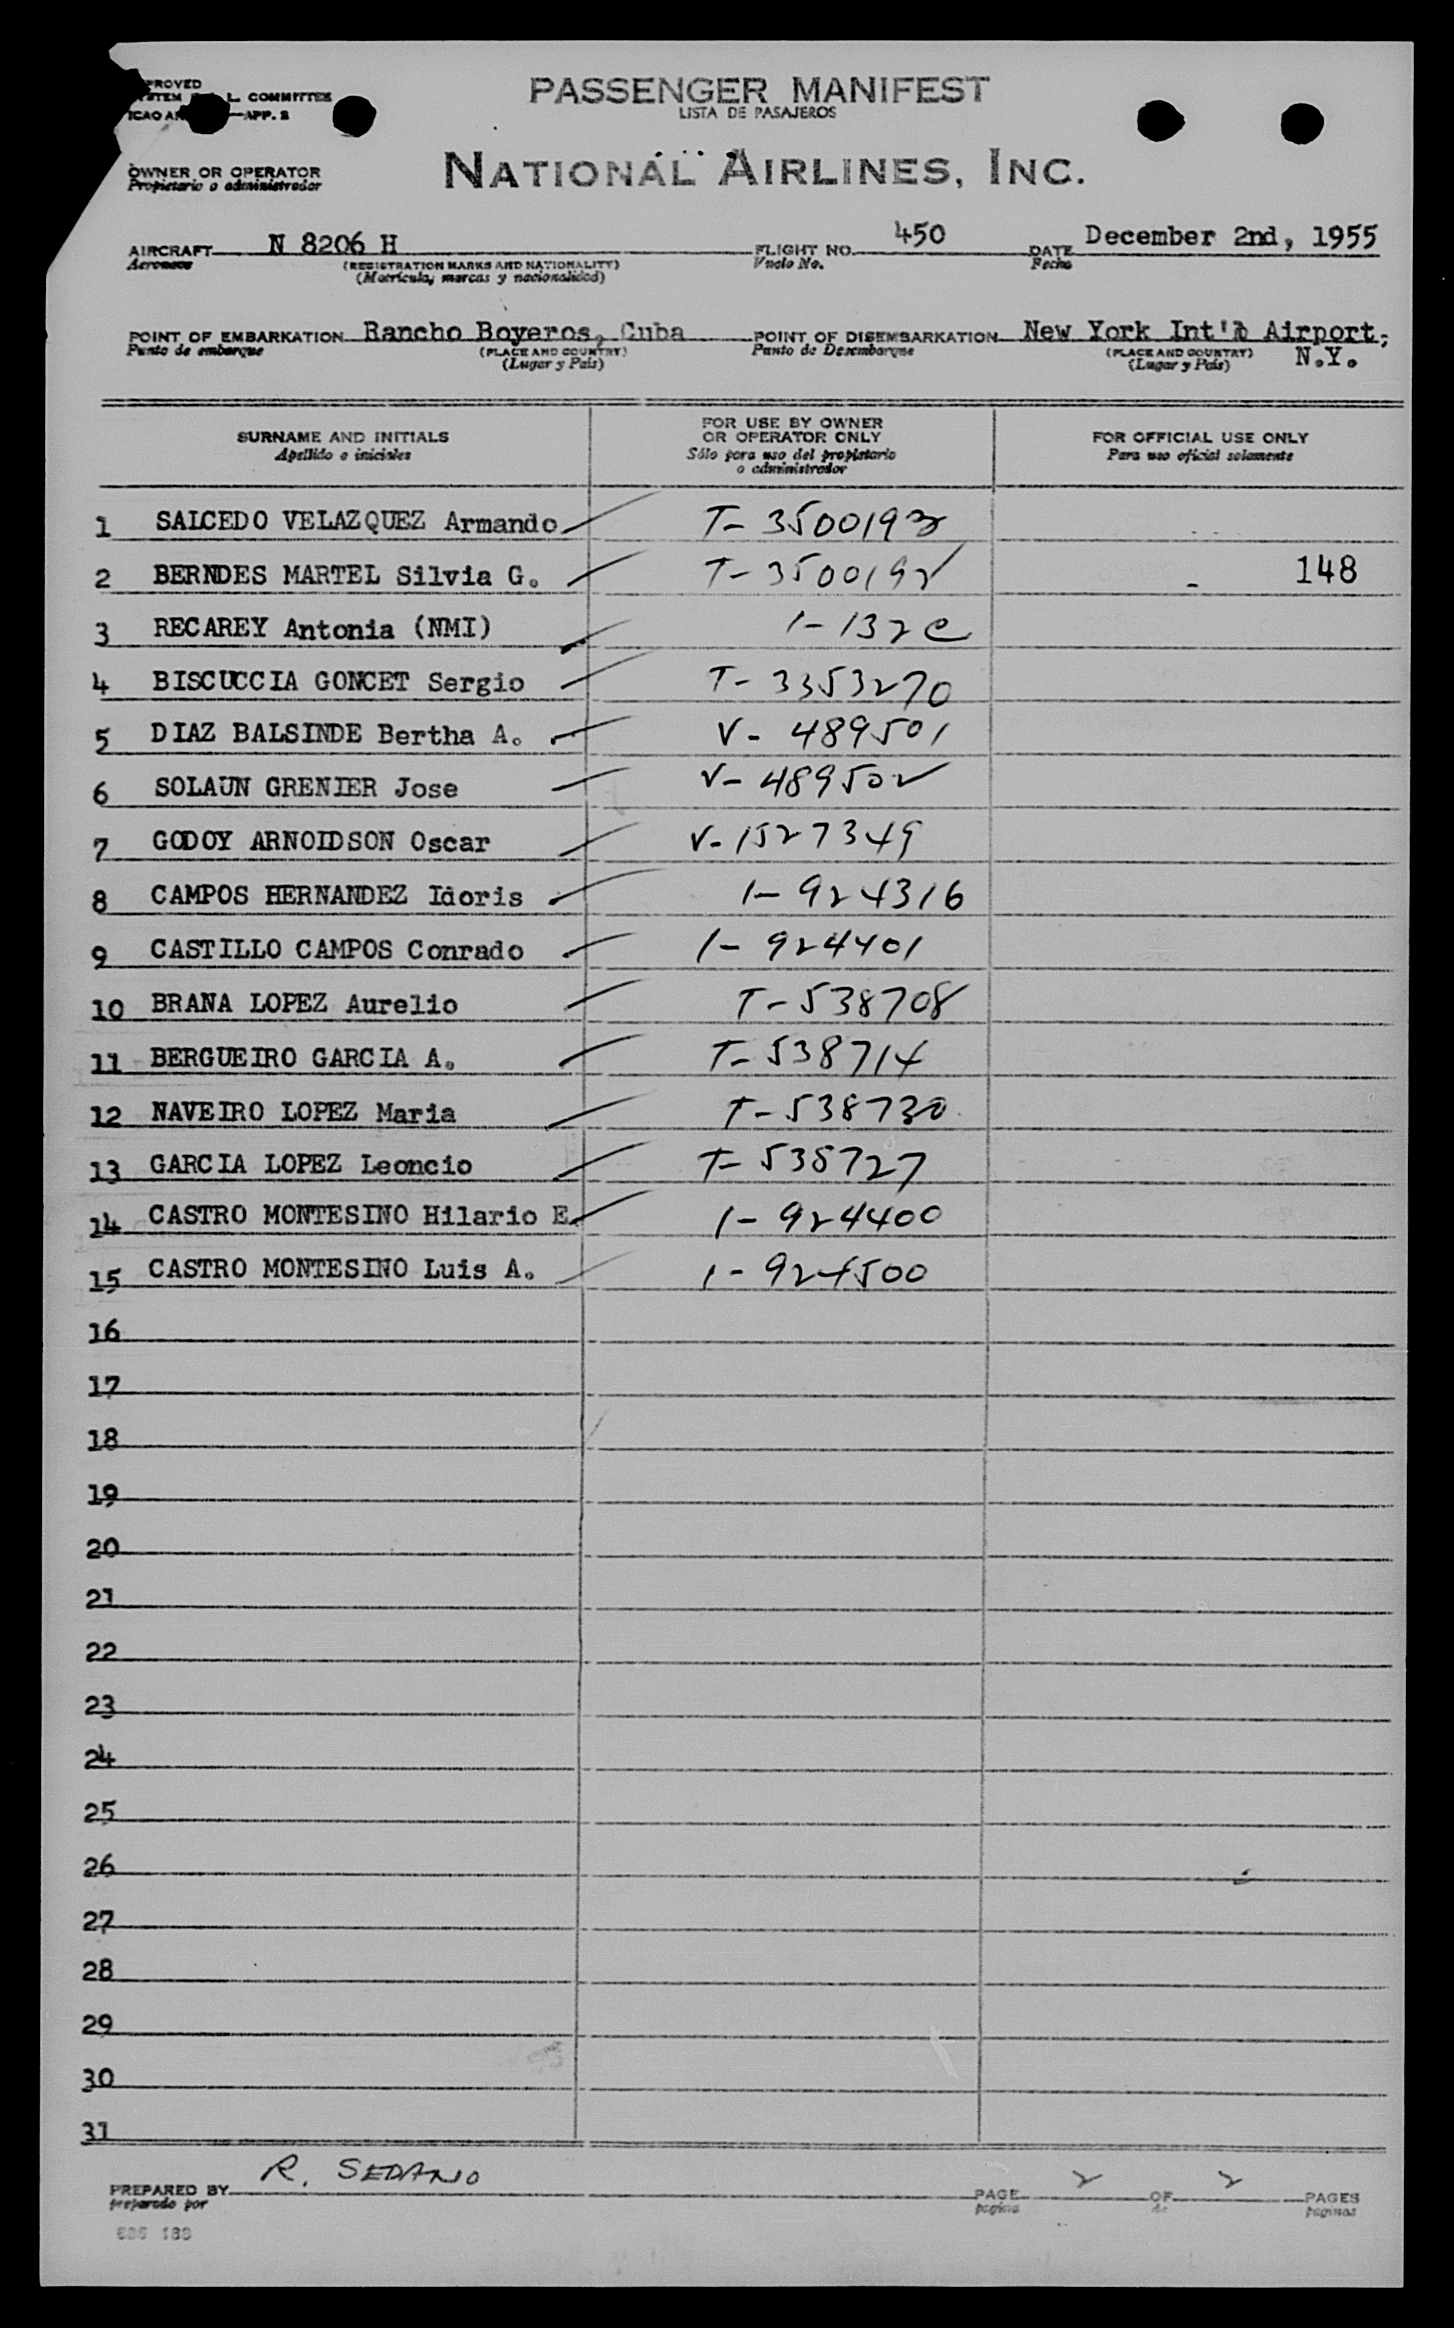 PROVED
STEM L. COMMITTEE
ICAO AN —APP. 2
PASSENGER MANIFEST
LISTA DE PASAJEROS
OWNER OR OPERATOR
Propietario o administrador
NATIONAL AIRLINES, INC.
AIRCRAFT N 8206 H FLIGHT NO. 450 DATE December 2nd, 1955
Aeronave (REGISTRATION MARKS AND NATIONALITY) Vuelo No. Fecha
(Matrícula, marcas y nacionalidad)
POINT OF EMBARKATION Rancho Boyeros, Cuba POINT OF DISEMBARKATION New York Int'l Airport,
Punto de embarque (PLACE AND COUNTRY) Punto de Desembarque (PLACE AND COUNTRY) N.Y.
(Lugar y País) (Lugar y País)
SURNAME AND INITIALS
Apellido e iniciales
FOR USE BY OWNER
OR OPERATOR ONLY
Sólo para uso del propietario
o administrador
FOR OFFICIAL USE ONLY
Para uso oficial solamente
1 SALCEDO VELAZQUEZ Armando T- 3500193
2 BERNDES MARTEL Silvia G. T- 3500192 148
3 RECAREY Antonia (NMI) 1-132
4 BISCUCCIA GONCET Sergio T- 3353270
5 DIAZ BALSINDE Bertha A. V- 489501
6 SOLAUN GRENIER Jose V- 489502
7 GODOY ARNOLDSON Oscar V-1527349
8 CAMPOS HERNANDEZ Idoris 1- 924316
9 CASTILLO CAMPOS Conrado 1- 924401
10 BRANA LOPEZ Aurelio T- 538708
11 BERGUEIRO GARCIA A. T- 538714
12 NAVEIRO LOPEZ Maria T- 538730
13 GARCIA LOPEZ Leoncio T- 538727
14 CASTRO MONTESINO Hilario E. 1- 924400
15 CASTRO MONTESINO Luis A. 1- 924500
16
17
18
19
20
21
22
23
24
25
26
27
28
29
30
31
PREPARED BY R. SEDANO PAGE 2 OF 2 PAGES
preparado por página de páginas